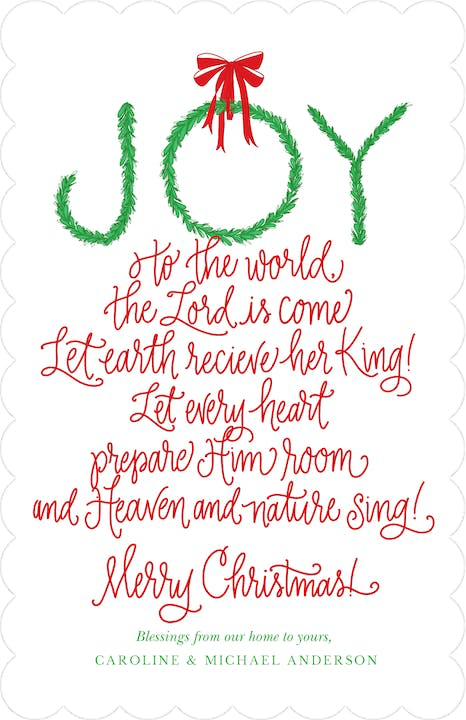 JOY
to the world,
the Lord is come
Let earth recieve her King!
Let every heart
prepare Him room
and Heaven and nature sing!
Merry Christmas!
Blessings from our home to yours,
CAROLINE & MICHAEL ANDERSON